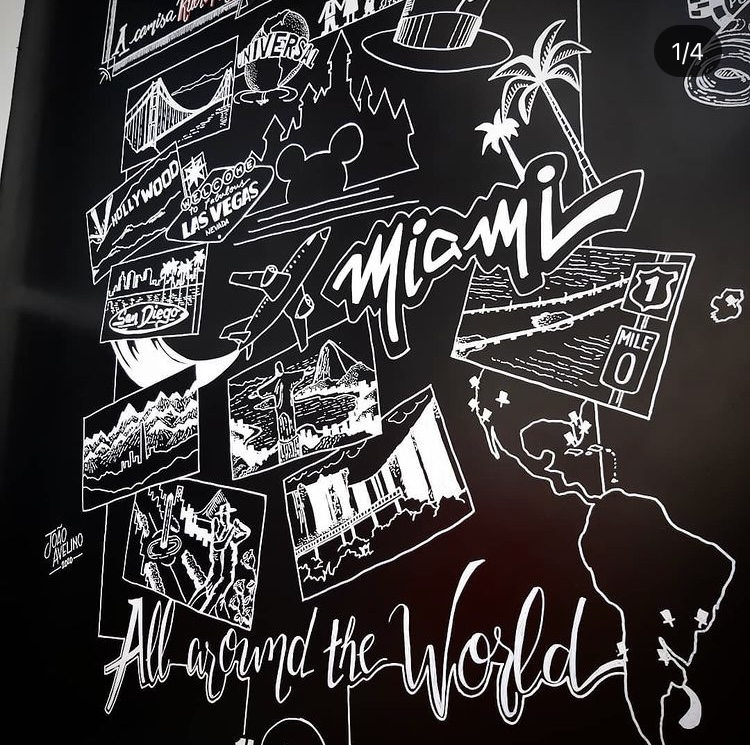 A camisa
1/4
UNIVERSAL
HOLLYWOOD
WELCOME
to fabulous
LAS VEGAS
NEVADA
Miami
San Diego
1
MILE
0
JOÃO
AVELINO
All around the World